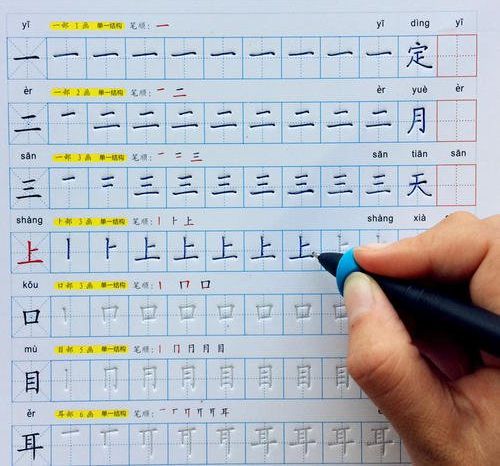 yī 一部 1画 单一结构 笔顺: 一 yī dìng yī
一 一 一 一 一 一 一 一 一 一 定
èr 一部 2画 单一结构 笔顺: 一 二 èr yuè èr
二 一 二 二 二 二 二 二 二 二 月
sān 一部 3画 单一结构 笔顺: 一 二 三 sān tiān sān
三 一 二 三 三 三 三 三 三 三 天
shàng 卜部 3画 单一结构 笔顺: 丨 卜 上 shàng xià
上 丨 卜 上 上 上 上 上 上
kǒu 口部 3画 单一结构 笔顺: 丨 冂 口
口 丨 冂 口 口 口 口 口
mù 目部 5画 单一结构 笔顺: 丨 冂 月 月 目
目 丨 冂 月 月 目 目 目
ěr 耳部 6画 单一结构 笔顺: 一 丅 丌 耳
耳 一 丅 丌 耳 耳 耳